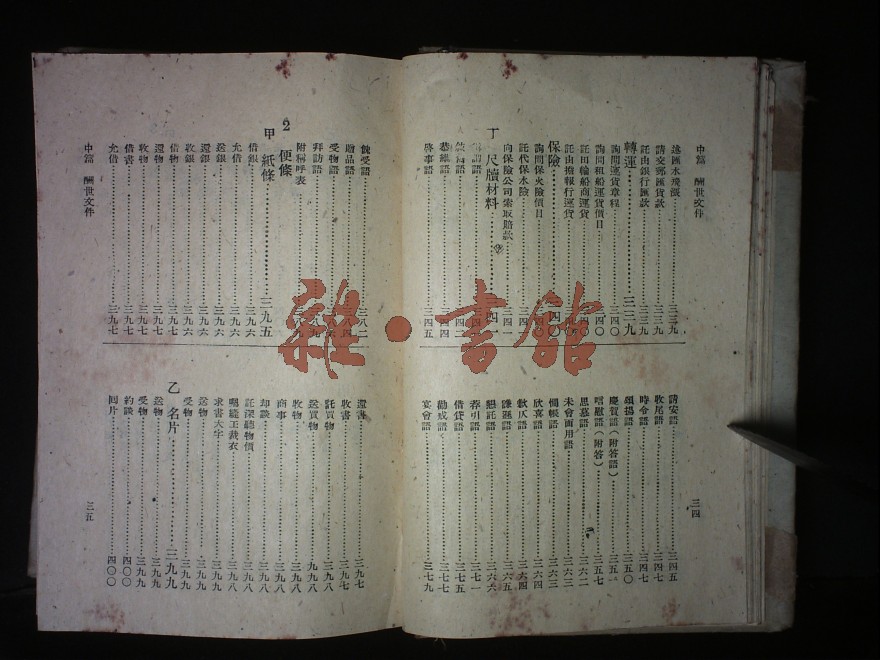 中篇 酬世文件
三四
送匯水規議
請交郵匯貨款……三三九
託由銀行匯款……三三九
轉運……三三九
詢問運貨章程……三四〇
詢問租船運貨價目
託田輪船商運貨
託由擔報行運貨
保險……四〇
詢問保火險價目
託代保水險
向保險公司索取賠款
丁 尺牘材料……四一
恭維語……三四四
啓事語……三四五
請安語……三四五
收尾語……三四七
時令語……三四七
頌揚語……三五〇
慶賀語(附答語)……三五一
唁慰語(附答)……三五七
思慕語……三六二
未會面用語……三六三
惆悵語……三六三
欣喜語……三六四
歉仄語……三六四
謙遜語……三六五
懇託語……三六六
薦引語……三七一
借貸語……三七五
勸戒語……三七七
宴會語……三七九
中篇 酬世文件
三五
餽受語……三八二
贈品語
受物語
拜訪語
附稱呼表
2 便條
甲 紙條……三九五
借銀……三九六
允借……三九六
送銀……三九六
還銀……三九六
收銀……三九六
借物……三九六
還物……三九七
收物……三九七
借書……三九七
允借……三九七
還書……三九七
收書……三九七
託買物……三九八
送買物
收物……三九八
商事……三九八
却談……三九八
託深聽物價……三九八
囑縫工裁衣……三九八
求書大字……三九八
送物……三九九
受物……三九九
乙 名片……三九九
送物……三九九
受物……三九九
約談……四〇〇
回片……四〇〇
雜·書館